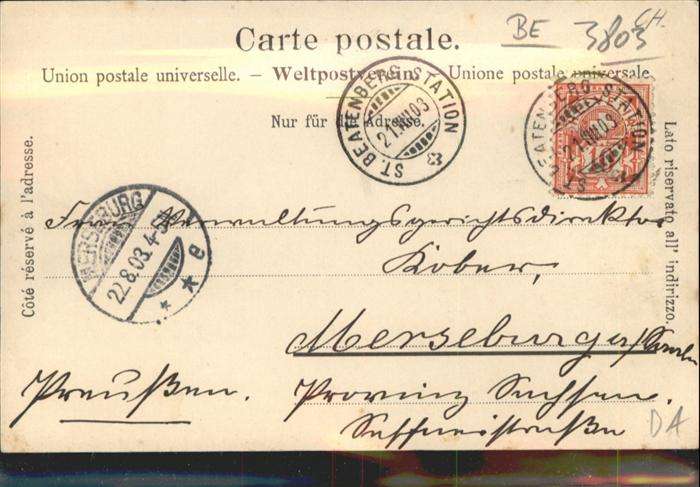 BE 3803 CH.
Carte postale.
Union postale universelle. – Weltpostverein. – Unione postale universale.
Nur für die Adresse.
Côté réservé à l'adresse.
Lato riservato all' indirizzo.
ST. BEATENBERG STATION
21.VIII.03
BEATENBERG STATION
21.VIII.03
MERSEBURG
22.8.03.4-5
* * e
Frau Verwaltungsgerichtsdirektor
Kober,
Merseburg a/
Preußen. Provinz Sachsen.
DA